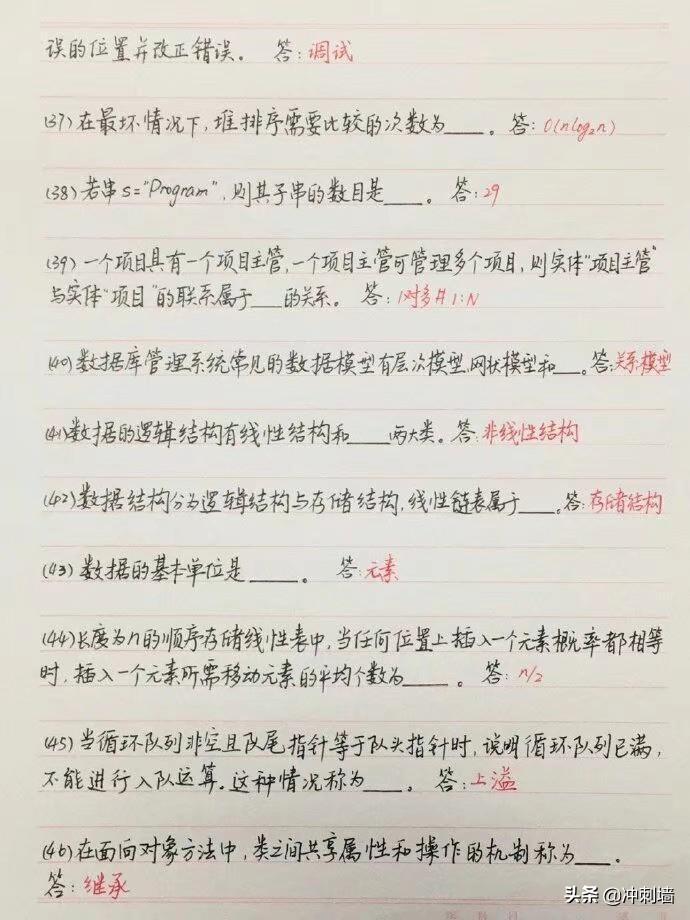 误的位置并改正错误。 答:调试
(37)在最坏情况下,堆排序需要比较的次数为____。答:O(nlog₂n)
(38)若串s="Program",则其子串的数目是____。 答:29
(39)一个项目具有一个项目主管,一个项目主管可管理多个项目,则实体"项目主管"
与实体"项目"的联系属于___的关系。 答:1对多#1:N
(40)数据库管理系统常见的数据模型有层次模型、网状模型和___。答:关系模型
(41)数据的逻辑结构有线性结构和____两大类。答:非线性结构
(42)数据结构分为逻辑结构与存储结构,线性链表属于____。答:存储结构
(43)数据的基本单位是_____。 答:元素
(44)长度为n的顺序存储线性表中,当任何位置上插入一个元素概率都相等
时,插入一个元素所需移动元素的平均个数为____。 答:n/2
(45)当循环队列非空且队尾指针等于队头指针时,说明循环队列已满,
不能进行入队运算。这种情况称为____。 答:上溢
(46)在面向对象方法中,类之间共享属性和操作的机制称为____。
答:继承
头条@冲刺墙